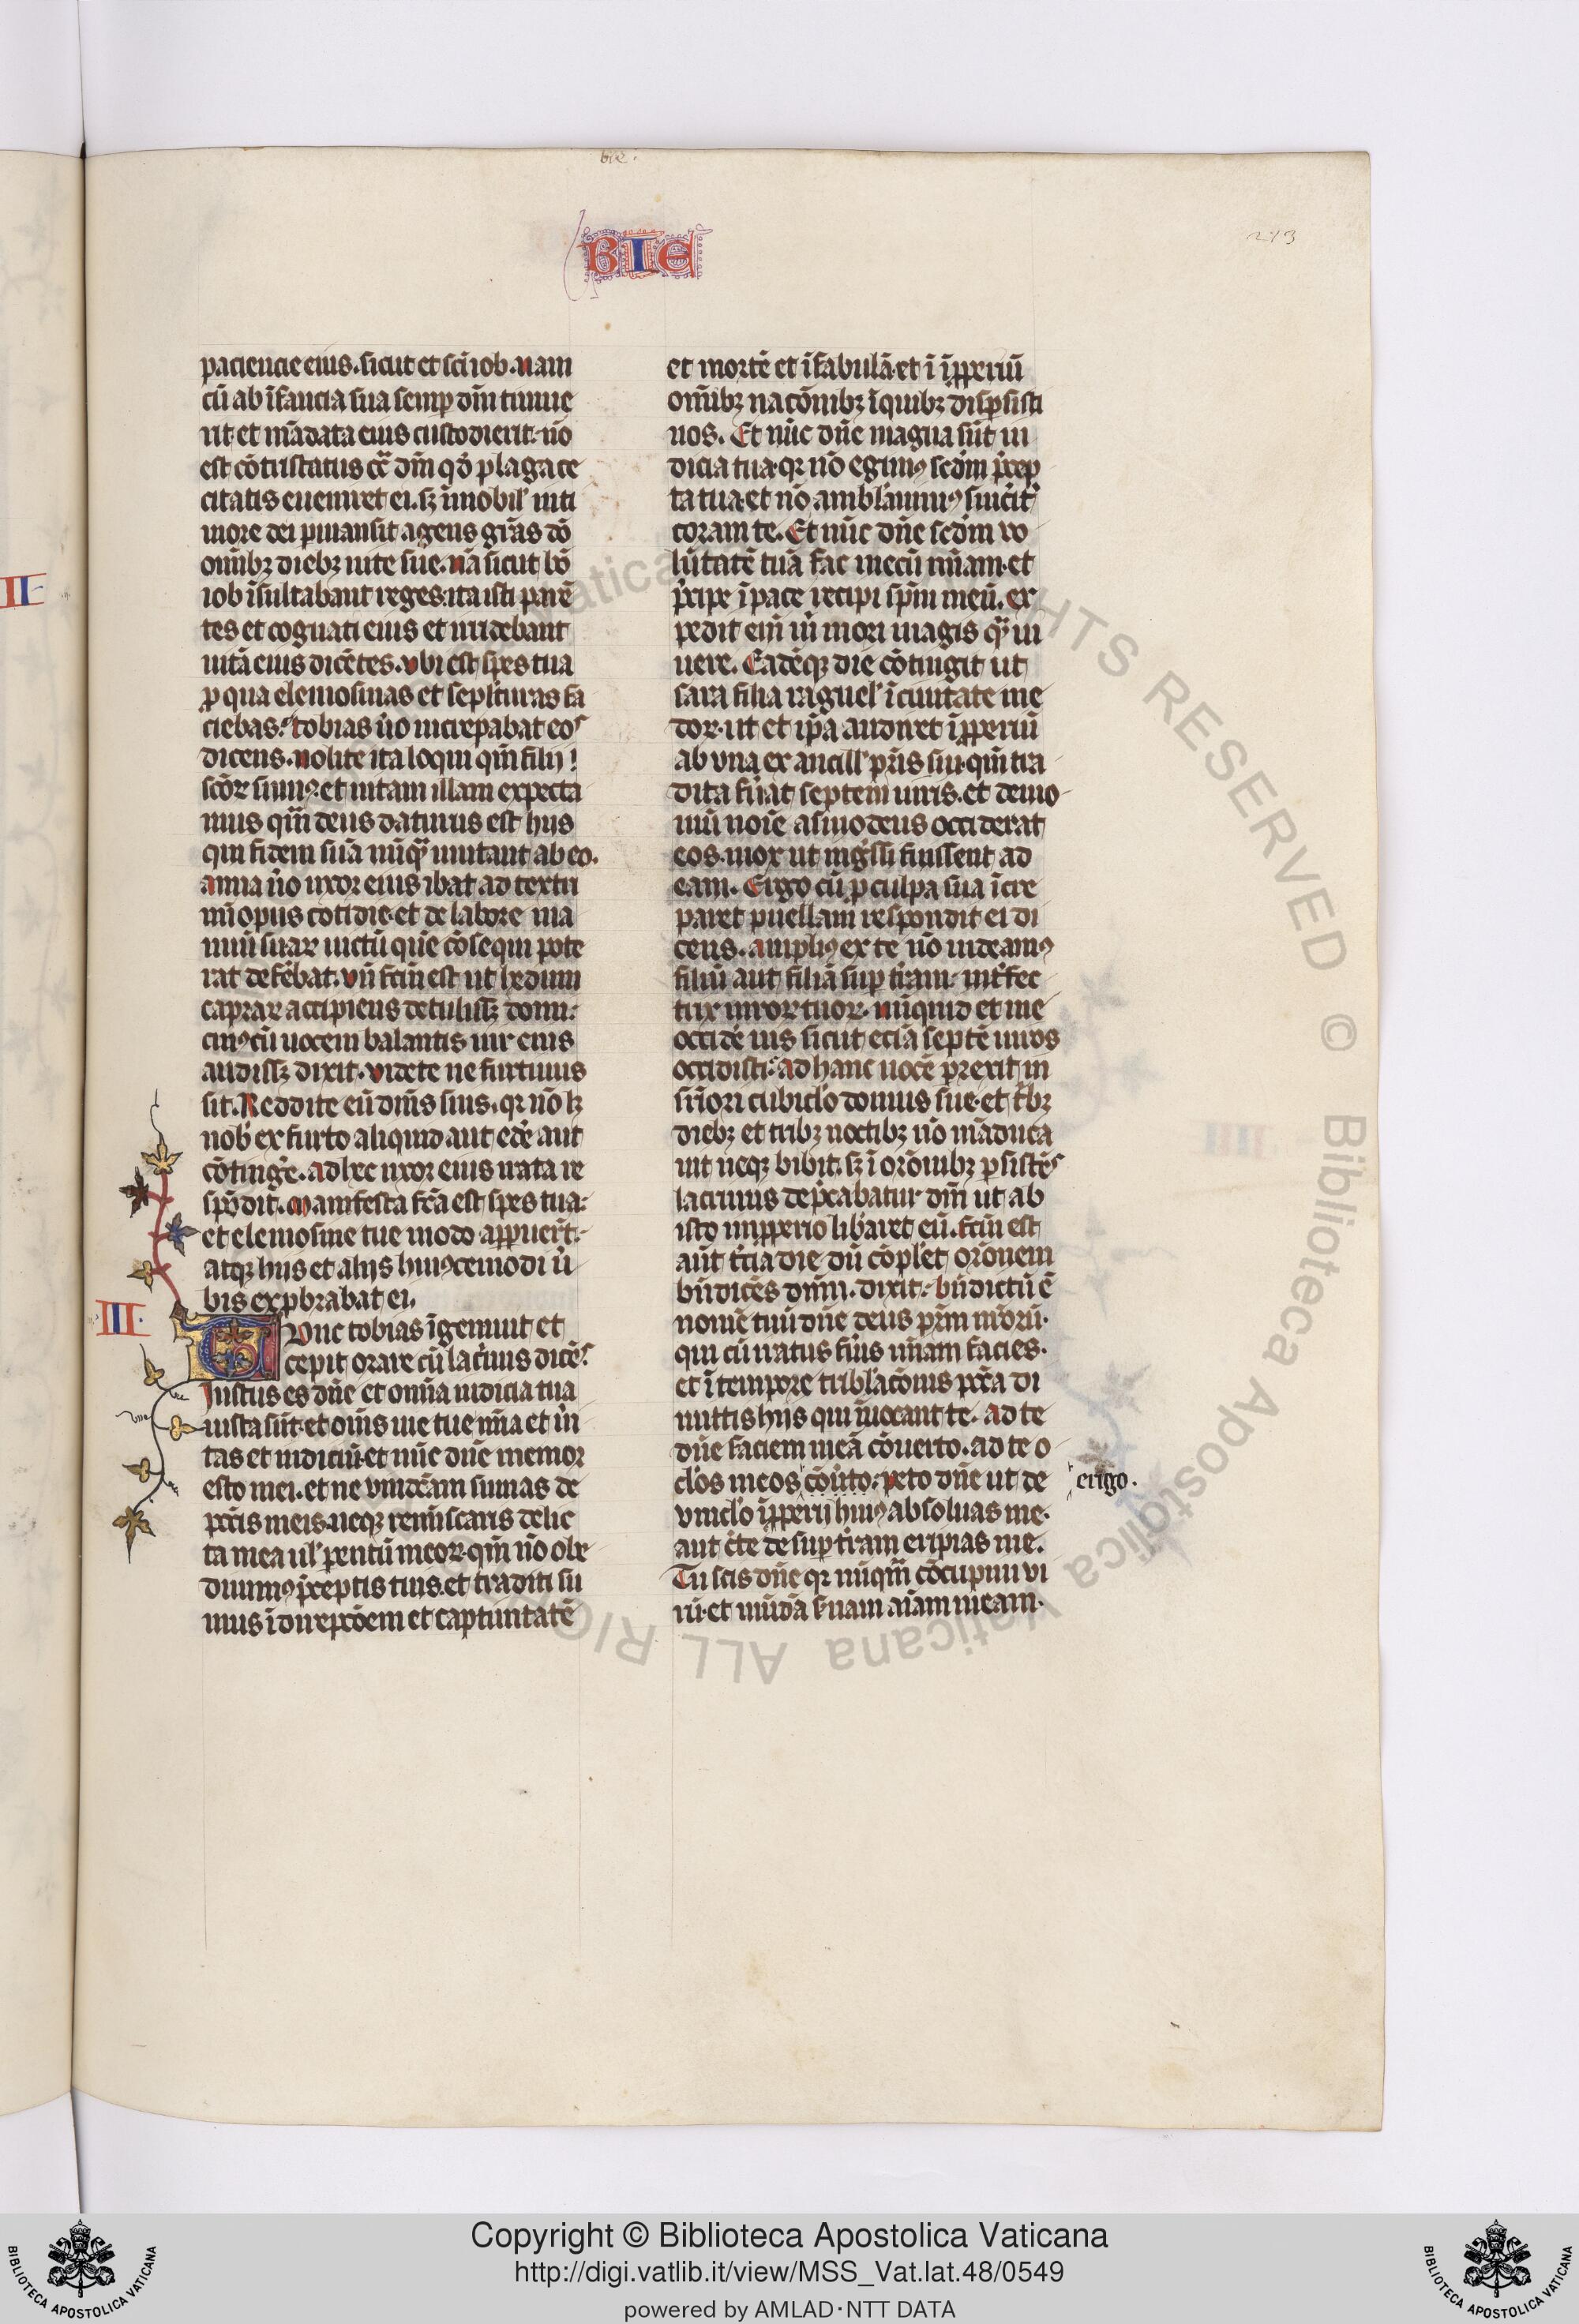 bie.
BIE
213
II
paciencie eius. sicut et sci̅ iob. nam
cu̅ ab i̅fancia sua semp dn̅m timue
rit et ma̅data eius custodierit. no̅
est co̅tristatus co̅ dn̅m qd̅ plaga ce
citatis eueniret ei. sꝫ i̅mobil' in ti
more dei pmansit agens gr̅as do̅
om̅ibꝫ diebꝫ uite sue. na̅ sicut bo̅
iob i̅sultabant reges. ita isti pare̅
tes et cognati eius et irridebant
uita̅ eius dice̅tes. vbi est spes tua
p qua elemosinas et sepl'turas fa
ciebas. tobias u̅o increpabat eos
dicens. nolite ita loqui qm̅ filij
sc̅oꝝ sumꝰ. et uitam illam expecta
mus qm̅ deus daturus est hijs
qui fidem sua̅ nu̅qꝫ mutant ab eo.
anna u̅o uxor eius ibat ad textri
nu̅ opus cotidie. et de labore ma
nuu̅ suaꝝ uictu̅ que̅ co̅sequi pote
rat defe̅bat. vn̅ fc̅m est ut hedum
capraꝝ accipiens detulissꝫ domi.
cuiꝰ cu̅ uocem balantis uir eius
audissꝫ dixit. videte ne furtiuus
sit. Reddite eu̅ dn̅is suis. qꝛ no̅ lꝫ
nob' ex furto aliquid aut ede̅ aut
co̅tinge̅. ad hec uxor eius irata re
spo̅dit. manifesta fc̅a est spes tua.
et elemosine tue modo appueru̅t.
atqꝫ hijs et alijs huiꝰcemodi u̅
bis expbrabat ei.
III.
Tunc tobias i̅gemuit et
cepit orare cu̅ lac̅mis dice̅s.
Iustus es dn̅e et omn̅ia iudicia tua
iusta su̅t. et om̅s uie tue mi̅a et u̅i
tas et iudiciu̅. et nu̅c dn̅e memor
esto mei. et ne vindc̅am sumas de
pcc̅is meis. neqꝫ remi̅scaris delic
ta mea ul' parentu̅ meoꝝ. qm̅ no̅ obe
diuimꝰ p̅ceptis tuis. et traditi su
mus i̅ direpc̅oem et captiuitate̅
et morte̅ et i̅ fabula̅. et i̅ i̅pperiu̅
om̅ibꝫ nac̅oibꝫ i̅ quibꝫ dispsisti
nos. Et nu̅c dn̅e magna su̅t iu
dicia tua. qꝛ no̅ egimꝰ scd̅m p̅cep
ta tua. et no̅ ambl'auimꝰ si̅ce̅it'
coram te. Et nu̅c dn̅e scd̅m vo
lu̅tate̅ tua̅ fac mecu̅ mi̅am. et
p̅cipe i̅ pace recipi sp̅m meu̅. ex
pedit eni̅ m̅ mori magis qꝫ ui
uere. Eade̅qꝫ die co̅tingit ut
sara filia raguel' i̅ ciuitate me
doꝝ. ut et ip̅a audiret i̅pperiu̅
ab vna ex ancill' pr̅is sui. qm̅ tra
dita fu̅at septem uiris. et demo
niu̅ noi̅e asmodeus occiderat
eos. mox ut ing̅ssi fuissent ad
eam. Ergo cu̅ p culpa sua i̅cre
paret puellam respondit ei di
cens. ampliꝰ ex te no̅ uideamꝰ
filiu̅ aut filia̅ sup tr̅am. int̅fec
trix uiroꝝ tuoꝝ. nu̅quid et me
occide̅ uis sicut ecia̅ septe̅ uiros
occidisti. ad hanc uoce̅ prexit in
su̅iori cubicl'o domus sue. et t̅bꝫ
diebꝫ et tribꝫ noctibꝫ no̅ ma̅duca
uit neqꝫ bibit. sꝫ i̅ oro̅nibꝫ psiste̅s
lacrimis dep̅cabatur dn̅m ut ab
isto impperio lib̅aret eu̅. fc̅m est
aut̅ t̅cia die du̅ co̅pl'et oro̅nem
bn̅dice̅s dnm̅. dixit. bn̅dictu̅ e̅
nome̅ tuu̅ dn̅e deus pr̅m nr̅oru̅.
qui cu̅ iratus fu̅is mi̅am facies.
et i̅ tempore tribl'ac̅onis pcc̅a di
mittis hijs qui i̅uocant te. ad te
dn̅e faciem mea̅ co̅uerto. ad te o
cl'os meos co̅u̅to. peto dn̅e ut de
erigo.
vincl'o i̅pperij huiꝰ absoluas me.
aut c̅te de sup tr̅am eripias me.
Tu scis dn̅e qꝛ nu̅qm̅ co̅cupiui vi
ru̅. et mu̅da̅ s̅uaui ai̅am meam.
Copyright © Biblioteca Apostolica Vaticana
http://digi.vatlib.it/view/MSS_Vat.lat.48/0549
powered by AMLAD·NTT DATA